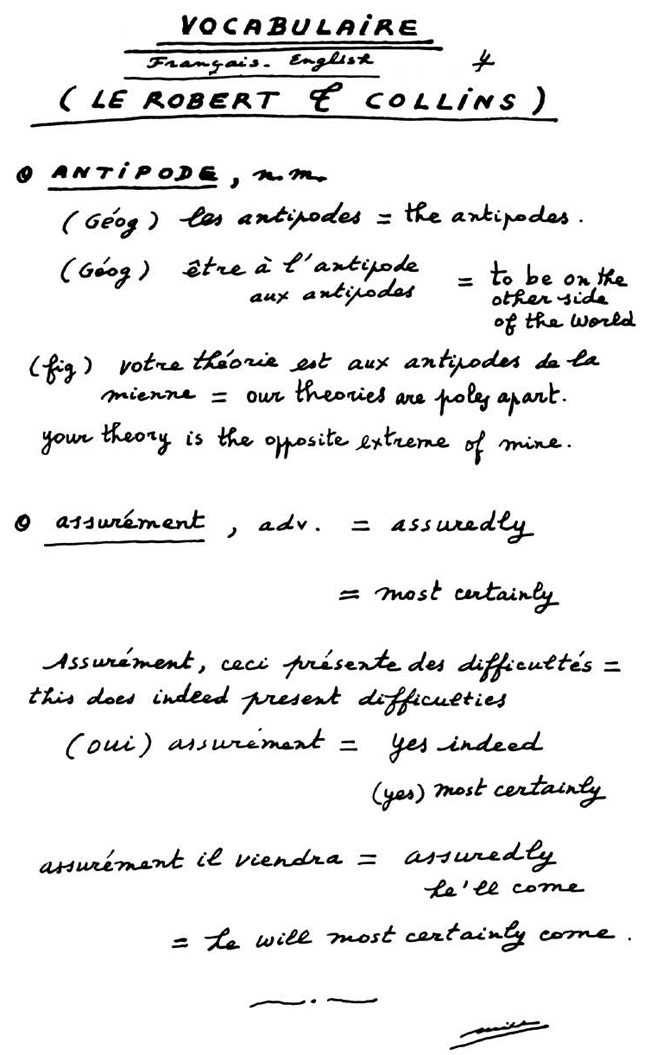 VOCABULAIRE
Français - English
(LE ROBERT & COLLINS)
ANTIPODE, n.m.
(Géog) les antipodes = the antipodes.
(Géog) être à l'antipode
aux antipodes
= to be on the
other side
of the world
(fig) votre théorie est aux antipodes de la
mienne = our theories are poles apart.
your theory is the opposite extreme of mine.
assurément, adv. = assuredly
= most certainly
Assurément, ceci présente des difficultés =
this does indeed present difficulties
(oui) assurément = yes indeed
(yes) most certainly
assurément il viendra = assuredly
he'll come
= he will most certainly come.